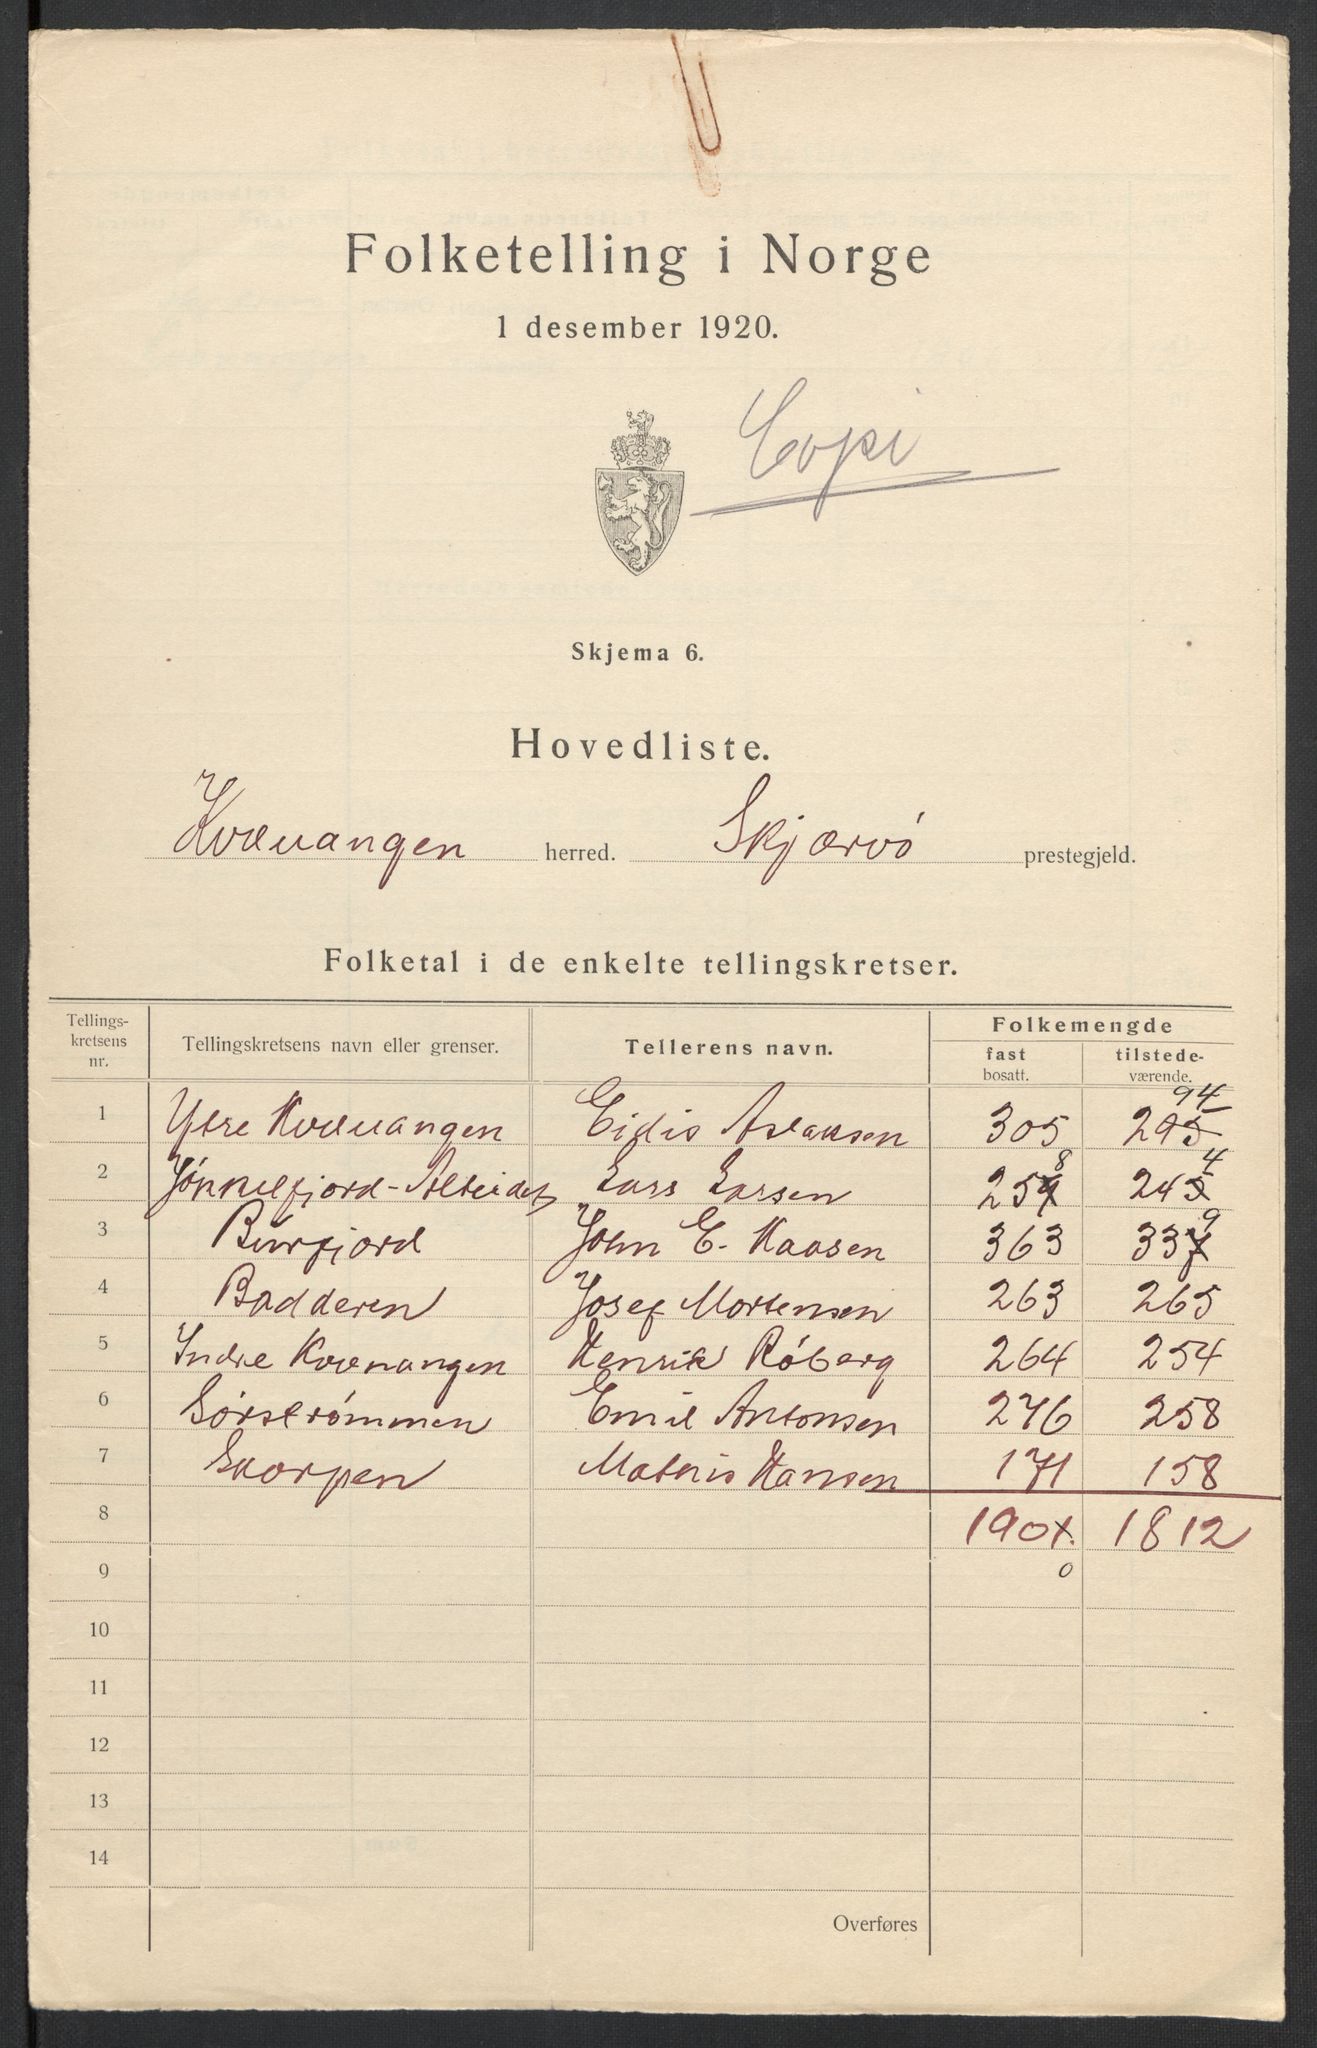 Folketelling i Norge
1 desember 1920.
Copi
Skjema 6.
Hovedliste.
Kvænangen herred. Skjærvö prestegjeld.
Folketal i de enkelte tellingskretser.
Tellings-kretsens nr. Tellingskretsens navn eller grenser. Tellerens navn. Folkemengde
fast bosatt. tilstede-værende.
1 Ytre Kvænangen Eidis Aslaksen 305 295 94
2 Jökkelfjord-Alteidet Lars Larsen 259 8 245 4
3 Burfjord John E. Kaasen 363 337 9
4 Badderen Josef Mortensen 263 265
5 Indre Kvænangen Henrik Röberg 264 254
6 Sörströmmen Emil Antonsen 276 258
7 Skorpen Mathis Hansen 171 158
8 1901. 1812
9 0
10
11
12
13
14
Overføres